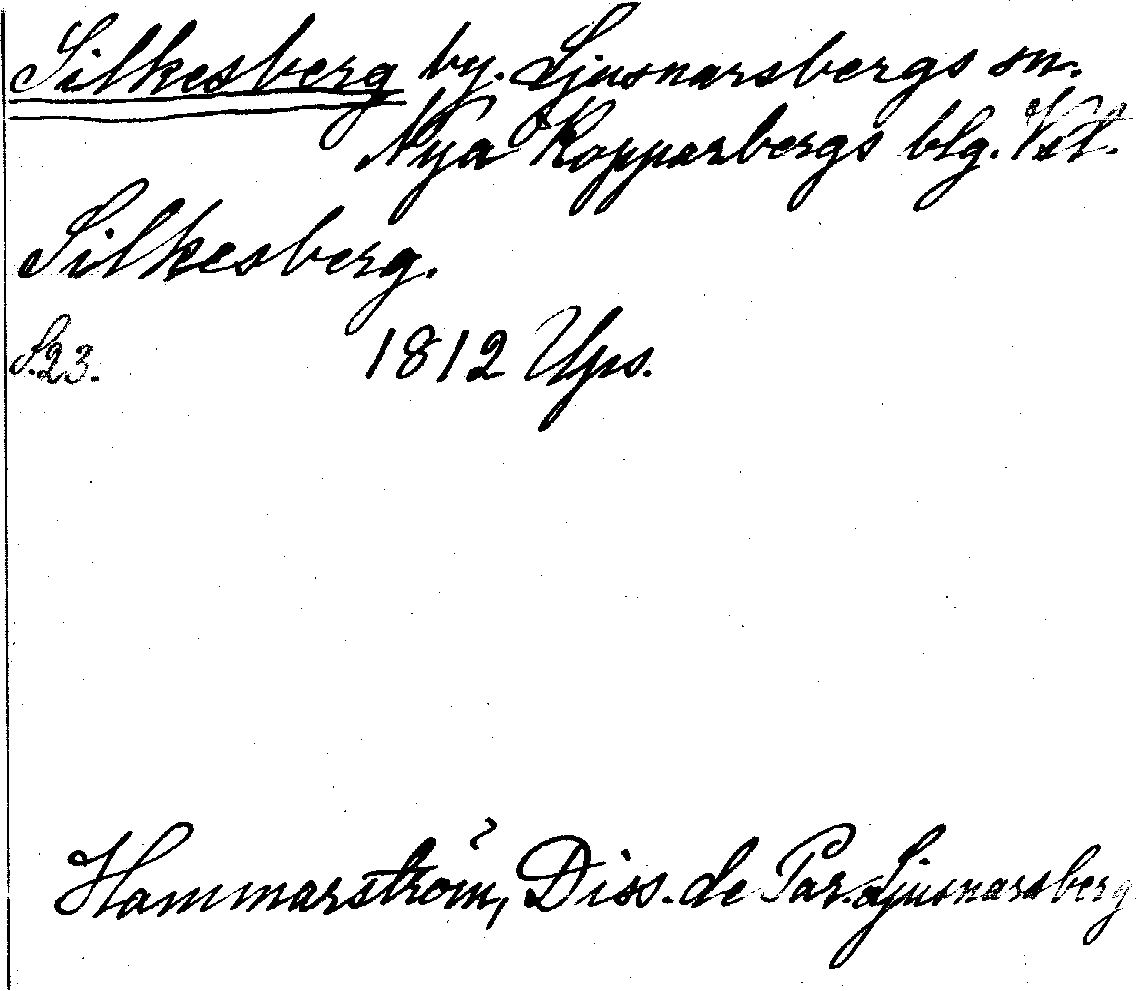 Silkesberg by. Ljusnarsbergs sn.
Nya Kopparbergs blg. Vstl.
Silkesberg.
S.23. 1812 Ups.
Hammarström, Diss. de Par. Ljusnarsberg